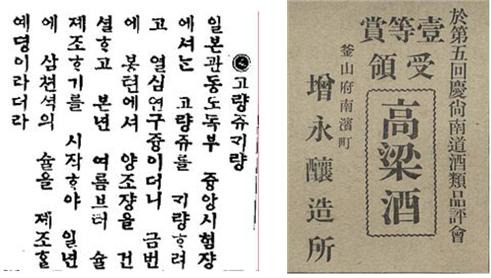 ◉고량쥬기량
일본관동도독부 즁앙시험쟝
에셔는 고량쥬를 기량ᄒᆞ려
고 열심연구즁이더니 금번
에 봉텬에셔 양조쟝을 건
셜ᄒᆞ고 본년 여름브터 슐
제조ᄒᆞ기를 시작ᄒᆞ야 일년
에 삼쳔셕의 슐을 제조ᄒᆞᆯ
예뎡이라더라
於第五回慶尙南道酒類品評會
壹等賞
受領
高梁酒
釜山府南濱町
增永釀造所